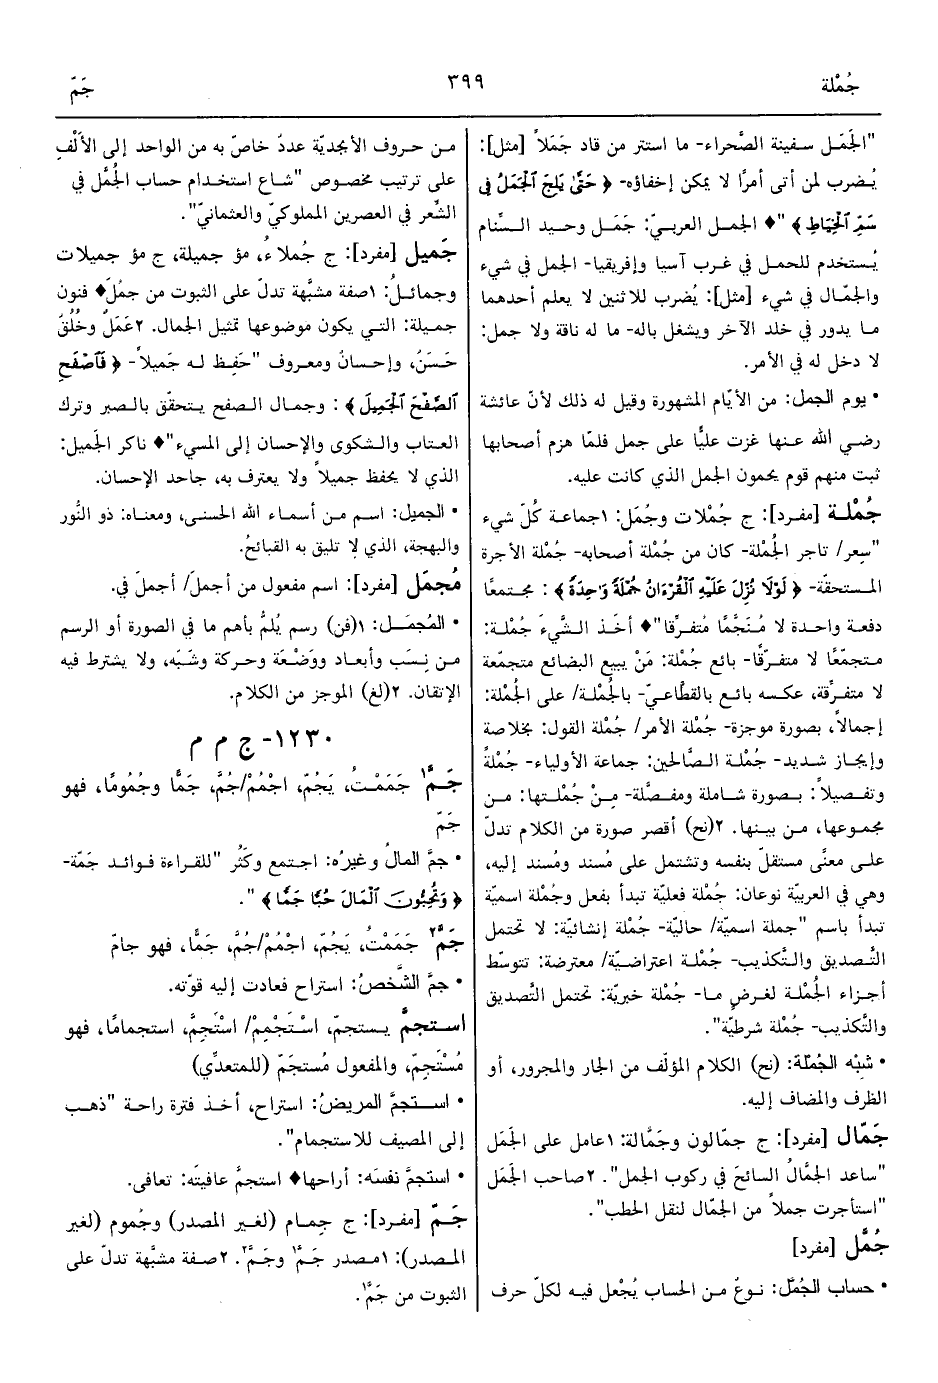 جُمْلة
٣٩٩
جَمّ
"الجَمَل سفينة الصَّحراء- ما استتر من قاد جَمَلاً [مثل]:
يُضرب لمن أتى أمرًا لا يمكن إخفاؤه- ﴿ حَتَّىٰ يَلِجَ ٱلْجَمَلُ فِى
سَمِّ ٱلْخِيَاطِ ﴾ "♦ الجمل العربيّ: جَمَل وحيد السَّنام
يُستخدم للحمل في غرب آسيا وإفريقيا- الجمل في شيء
والجمّال في شيء [مثل]: يُضرب للاثنين لا يعلم أحدهما
ما يدور في خلد الآخر ويشغل باله- ما له ناقة ولا جمل:
لا دخل له في الأمر.
• يوم الجمل: من الأيّام المشهورة وقيل له ذلك لأنّ عائشة
رضي الله عنها غزت عليًّا على جمل فلمّا هزم أصحابها
ثبت منهم قوم يحمون الجمل الذي كانت عليه.
جُمْلة [مفرد]: ج جُمْلات وجُمَل: ١جماعة كلّ شيء
"سِعر/ تاجر الجُمْلة- كان من جُمْلة أصحابه- جُمْلة الأجرة
المستحقّة- ﴿ لَوْلَا نُزِّلَ عَلَيْهِ ٱلْقُرْءَانُ جُمْلَةً وَٰحِدَةً ﴾ : مجتمعًا
دفعة واحدة لا مُنَجَّمًا مُتفرِّقا"♦ أخذ الشَّيءَ جُمْلة:
متجمّعًا لا متفرّقًا- بائع جُمْلة: مَنْ يبيع البضائع متجمّعة
لا متفرِّقة، عكسه بائع بالقطّاعيّ- بالجُمْلة/ على الجُمْلة:
إجمالاً، بصورة موجزة- جُمْلة الأمر/ جُمْلة القول: بخلاصة
وإيجاز شديد- جُمْلة الصَّالحين: جماعة الأولياء- جُمْلةً
وتفصيلاً: بصورة شاملة ومفصَّلة- مِنْ جُمْلتها: من
مجموعها، من بينها. ٢(نح) أقصر صورة من الكلام تدلّ
على معنًى مستقلّ بنفسه وتشتمل على مُسند ومُسند إليه،
وهي في العربيّة نوعان: جُمْلة فعليّة تبدأ بفعل وجُمْلة اسميّة
تبدأ باسم "جملة اسميّة/ حاليّة- جُمْلة إنشائيّة: لا تحتمل
التَّصديق والتَّكذيب- جُمْلة اعتراضيّة/ معترضة: تتوسّط
أجزاء الجُمْلة لغرضٍ ما- جُمْلة خبريّة: تحتمل التَّصديق
والتَّكذيب- جُمْلة شرطيّة".
• شِبْه الجُمْلة: (نح) الكلام المؤلّف من الجار والمجرور، أو
الظرف والمضاف إليه.
جَمّال [مفرد]: ج جمّالون وجَمَّالة: ١عامل على الجَمَل
"ساعد الجمَّالُ السائحَ في ركوب الجمل". ٢صاحب الجَمَل
"استأجرت جملاً من الجمّال لنقل الحطب".
جُمَّل [مفرد]
• حساب الجُمَّل: نوعٌ من الحساب يُجْعل فيه لكلّ حرف
من حروف الأبجديّة عددٌ خاصّ به من الواحد إلى الأَلْفِ
على ترتيب مخصوص "شاع استخدام حساب الجُمَّل في
الشِّعر في العصرين المملوكيّ والعثمانيّ".
جَميل [مفرد]: ج جُملاءُ، مؤ جميلة، ج مؤ جميلات
وجمائلُ: ١صفة مشبَّهة تدلّ على الثبوت من جمُلَ♦ فنون
جميلة: التي يكون موضوعها تمثيل الجمال. ٢عَمَلٌ وخُلُقٌ
حَسَنٌ، وإحسانٌ ومعروف "حَفِظ له جَميلاً- ﴿ فَٱصْفَحِ
ٱلصَّفْحَ ٱلْجَمِيلَ ﴾ : وجمال الصفح يتحقّق بالصبر وترك
العتاب والشكوى والإحسان إلى المسيء"♦ ناكر الجَميل:
الذي لا يحفظ جميلاً ولا يعترف به، جاحد الإحسان.
• الجميل: اسم من أسماء الله الحسنى، ومعناه: ذو النُّور
والبهجة، الذي لا تليق به القبائحُ.
مُجمَل [مفرد]: اسم مفعول من أجملَ/ أجملَ في.
• المُجمَل: ١(فن) رسم يُلمُّ بأهم ما في الصورة أو الرسم
من نِسَب وأبعاد ووَضْعَة وحركة وشَبَه، ولا يشترط فيه
الإتقان. ٢(لغ) الموجز من الكلام.
١٢٣٠- ج م م
جَمَّ١ جَمَمْتُ، يَجُمّ، اجْمُمْ/جُمَّ، جَمًّا وجُمُومًا، فهو
جَمّ
• جمَّ المالُ وغيرُه: اجتمع وكَثُر "للقراءة فوائد جَمّة-
﴿ وَتُحِبُّونَ ٱلْمَالَ حُبًّا جَمًّا ﴾ ".
جَمَّ٢ جَمَمْتُ، يَجُمّ، اجْمُمْ/جُمَّ، جَمًّا، فهو جامّ
• جمَّ الشَّخصُ: استراح فعادت إليه قوّته.
استجمَّ يستجمّ، اسْتَجْمِمْ/ اسْتَجِمَّ، استجمامًا، فهو
مُسْتَجِمّ، والمفعول مُستجَمّ (للمتعدِّي)
• استجمَّ المريضُ: استراح، أخذ فترة راحة "ذهب
إلى المصيف للاستجمام".
• استجمَّ نفسَه: أراحها♦ استجمَّ عافيتَه: تعافى.
جَمّ [مفرد]: ج جِمام (لغير المصدر) وجُموم (لغير
المصدر): ١مصدر جَمَّ١ وجَمَّ٢. ٢صفة مشبّهة تدلّ على
الثبوت من جَمَّ١.